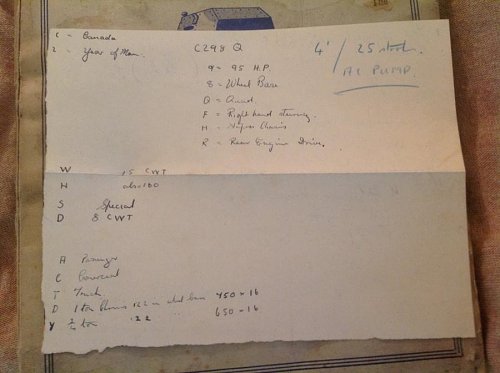 C - Canada
2 - Year of Man.
C298 Q
4' / 25 stock.
AC PUMP.
9 = 95 H.P.
8 = Wheel Base
Q = Quad.
F = Right hand steering
H =
R = Rear Engine Drive.
W 15 CWT
H
S Special
D 8 CWT
A Passenger
C Commercial
T Truck
D 1 ton 122 in wheel base 750 × 16
Y ton 122 " " 650 × 16